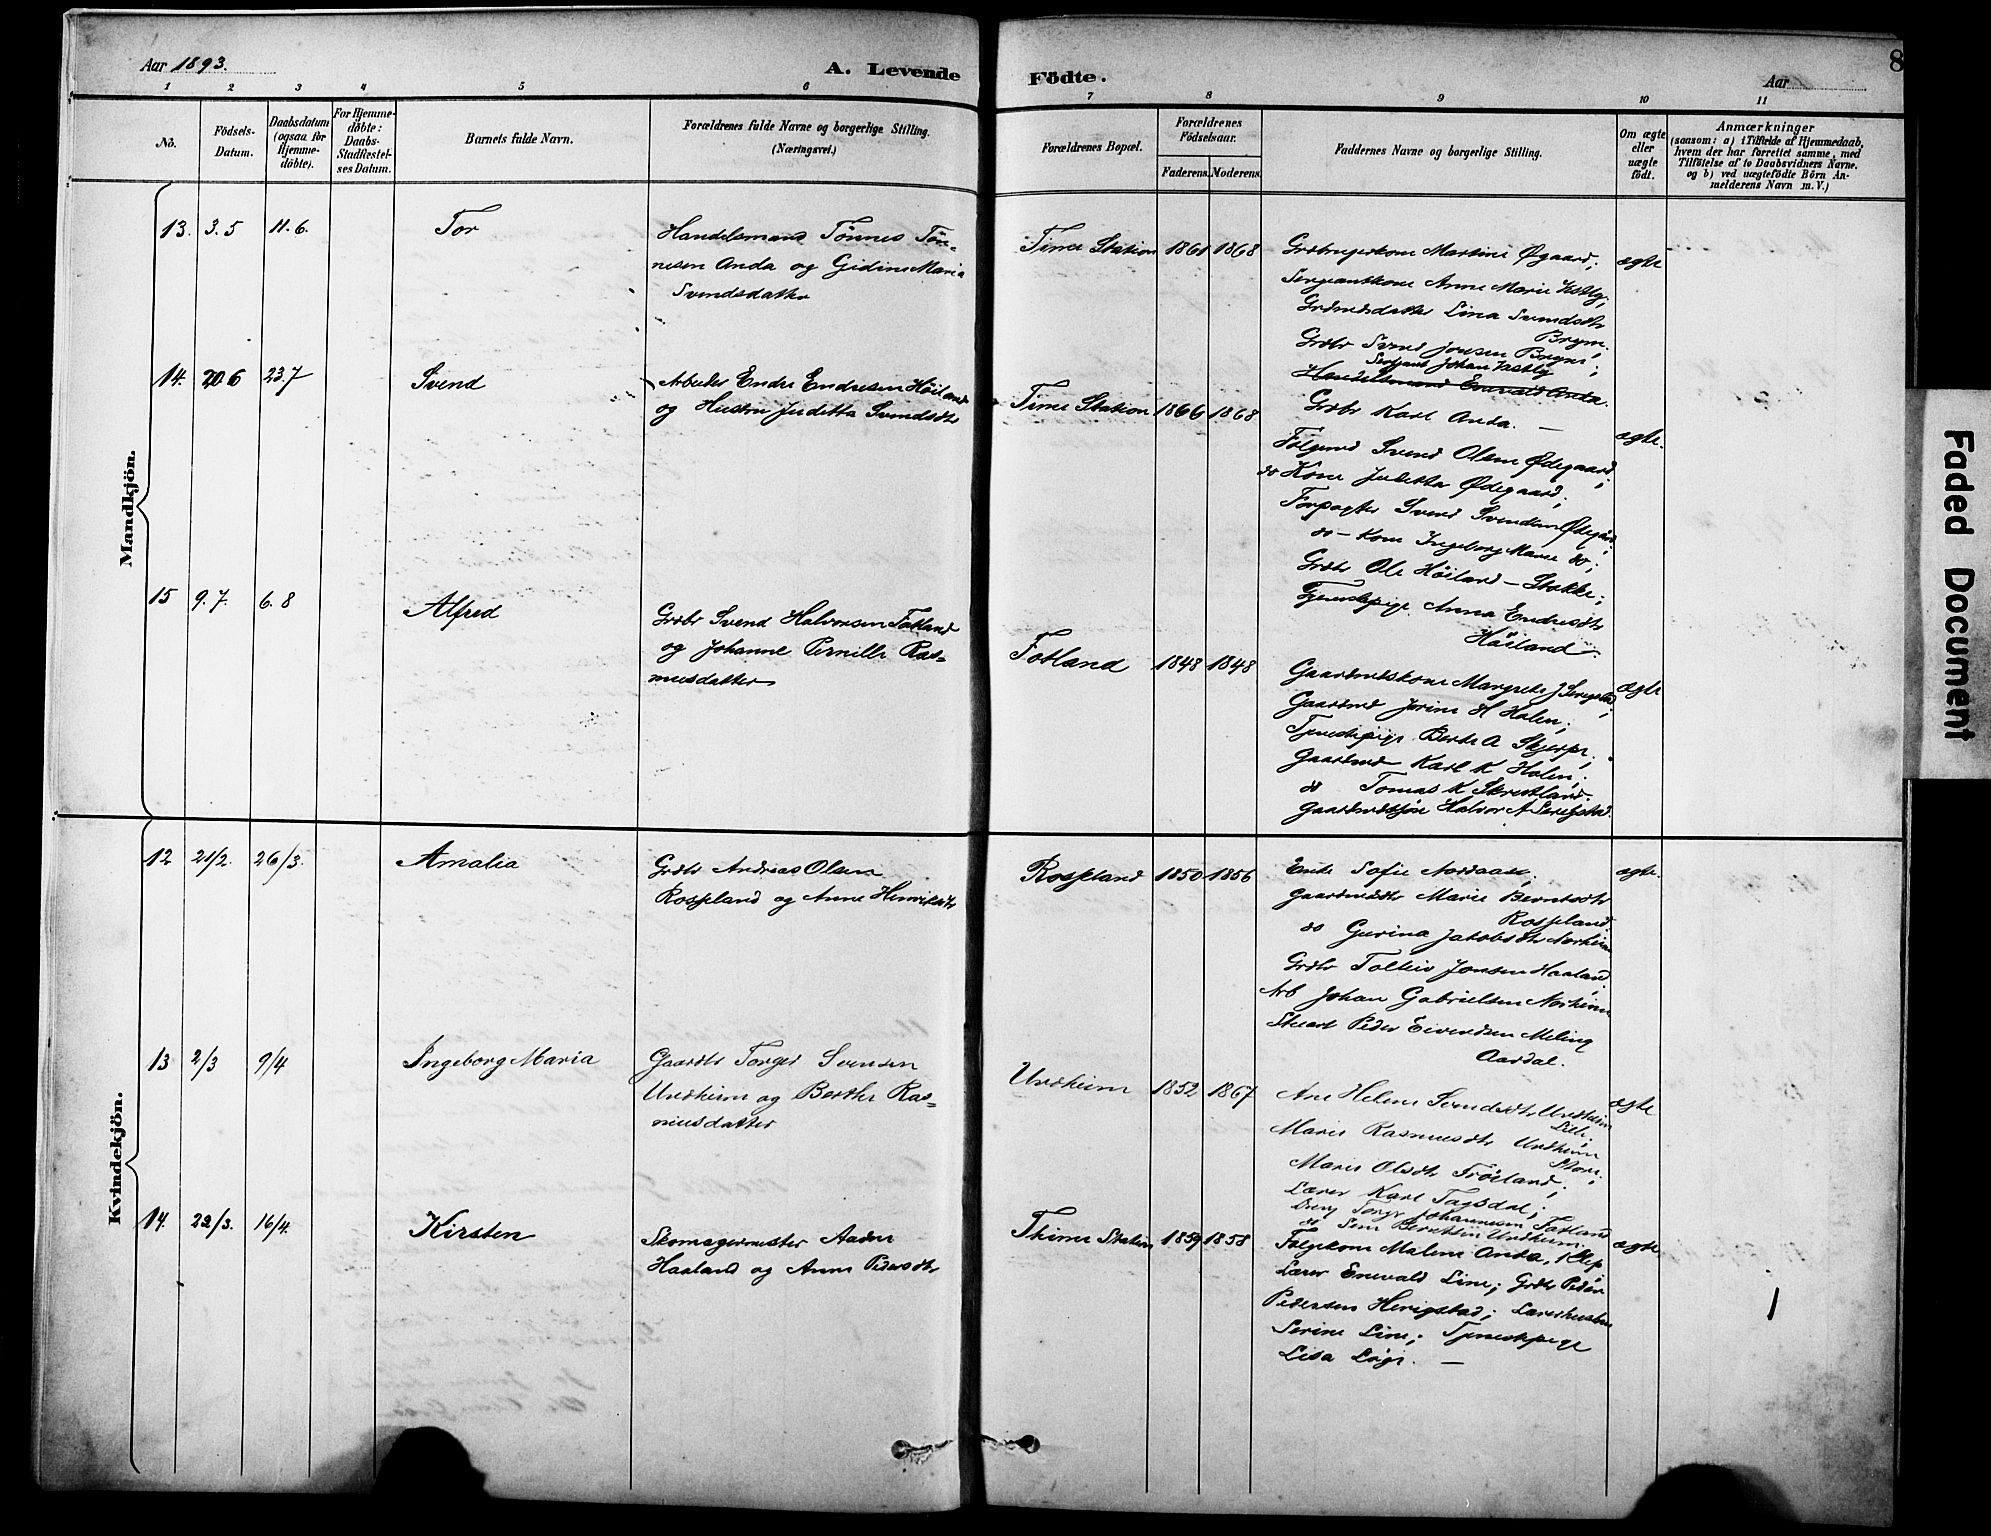 Aar 1893.
A. Levende
Födte.
Aar
8
1 2 3 4 5 6 7 8 9 10 11
No.
Födsels-
Datum.
Daabsdatum
(ogsaa for
Hjemme-
döbte).
For Hjemme-
döbte:
Daabs-
Stadfæstel-
ses Datum.
Barnets fulde Navn.
Forældrenes fulde Navne og borgerlige Stilling.
(Næringsvei.)
Forældrenes Bopæl.
Forældrenes
Födselsaar.
Faderens. Moderens.
Faddernes Navne og borgerlige Stilling.
Om ægte
eller
uægte
födt.
Anmærkninger
(saasom: a) i Tilfælde af Hjemmedaab,
hvem der har forrettet samme, med
Tilföielse af to Daabsvidners Navne.
og b) ved uægtefödte Börn An-
melderens Navn m. V.)
Mandkjön.
13. 3.5 11.6. Tor
Handelsmand Tönnes Tön-
nesen Anda og Gidine Maria
Svendsdatter
Time Station 1861 1868
Grdbrugerkone Martine Øgaard;
Sergeantkone Anne Marie Vestly;
Grdmdsdatter Lina Svendsdtr
Bryne.
Grdbr Svend Jonsen Bryne;
Sergeant Johan Vestly
Handelsmand Enevald Anda.
Grdbr Karl Anda. —
ægte
14. 20.6 23.7 Svend
Arbeider Endre Endresen Höiland
og Hustru Juditta Svendsdtr
Time Station 1866 1868
Fölgemd Svend Olsen Ødegaard;
do Kone Juditta Ødegaard;
Forpagter Svend Svendsen Ødegård;
do – Kone Ingeborg Marie do;
Grdbr Ole Höiland – Stokke;
Tjenestepige Anna Endresdtr
Höiland
ægte.
15 9.7. 6.8 Alfred
Grdbr Svend Halvorsen Fotland
og Johanne Pernille Ras-
musdatter
Fotland 1848 1848
Gaardmdskone Margrete J Serigstad;
Gaardmd Jorine H Holen;
Tjenestepige Berte A Skjerpe;
Gaardmd Karl K Holen;
do Tomas K Skretland.
Gaardmdssön Halvor A Serigstad.
ægte
Kvindekjön.
12 21/2. 26/3. Amalia
Grdbr Andreas Olsen
Rosseland og Anne Henriksdtr
Rosseland 1850 1856
Enke Sofie Nordaas;
Gaardmdsdtr Marie Berntsdtr
Rosseland.
do Gurina Jakobsdtr Norheim
Grdbr Tolleiv Jonsen Haaland,
Arb Johan Gabrielsen Norheim
Stuart Peder Eivendsen Meling
Aardal.
ægte.
13 2/3 9/4 Ingeborg Maria
Gaardbr Torger Svensen
Undheim og Berthe Ras-
musdatter
Undheim 1852 1867
Ane Helene Svendsdtr Undheim
Lille;
Marie Rasmusdtr Undheim
Store;
Marie Olsdtr Fröiland;
Lærer Karl Tagsdal;
Torger Johannesen Fotland
do Sem Berntsen Undheim.
ægte
14. 22/3. 16/4. Kirsten
Skomagermester Aadne
Haaland og Anne Pedersdtr
Thime Station 1859 1858
Fölgekone Malene Anda, Klep
Lærer Enevald Line; Grdbr Peder
Pedersen Herigstad; Lærerhustru
Serine Line; Tjenestepige
Lisa Löge. —
ægte
Faded Document